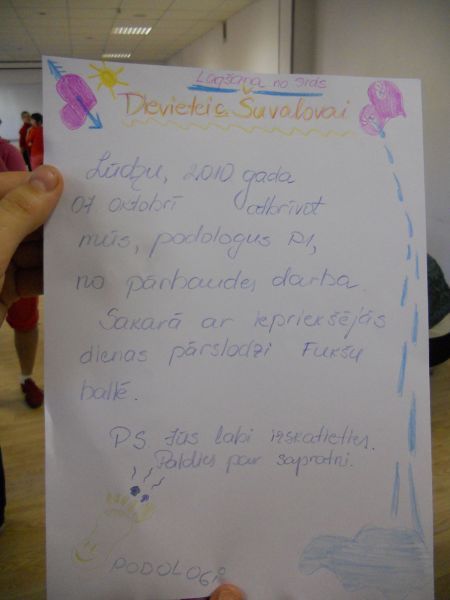 Lūgšana no sirds
Dievietei Suvalovai
Lūdzu, 2010 gada
07 oktobrī atbrīvot
mūs, podologus P1,
no pārbaudes darba.
Sakarā ar iepriekšējās
dienas pārslodzi Fukšu
ballē.
PS. Jūs labi izskatieties.
Paldies par sapratni.
PODOLOGI